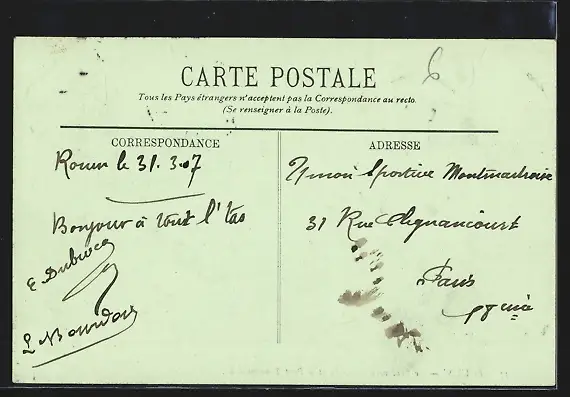 CARTE POSTALE
Tous les Pays étrangers n'acceptent pas la Correspondance au recto.
(Se renseigner à la Poste).
CORRESPONDANCE
ADRESSE
Rouen le 31.3.07
Bonjour à tout l'tas
E Dubrocq
L Bourdon
Union Sportive Montmartroise
31 Rue Clignancourt
Paris
6